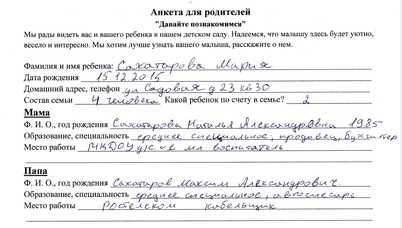 Анкета для родителей
"Давайте познакомимся"
Мы рады видеть вас и вашего ребенка в нашем детском саду. Надеемся, что малышу здесь будет уютно,
весело и интересно. Мы хотим лучше узнать вашего малыша, расскажите о нем.
Фамилия и имя ребенка: Сахатарова Мария
Дата рождения 15.12.2015
Домашний адрес, телефон ул Садовая д 23 кв 30
Состав семьи 4 человека Какой ребенок по счету в семье? 2
Мама
Ф. И. О., год рождения Сахатарова Наталья Александровна 1985
Образование, специальность среднее специальное, продовец, бухгалтер
Место работы МКДОУ д/с мл воспитатель
Папа
Ф. И. О., год рождения Сахатаров Максим Александрович.
Образование, специальность среднее специальное, автослесарь
Место работы Ростелеком кабельщик